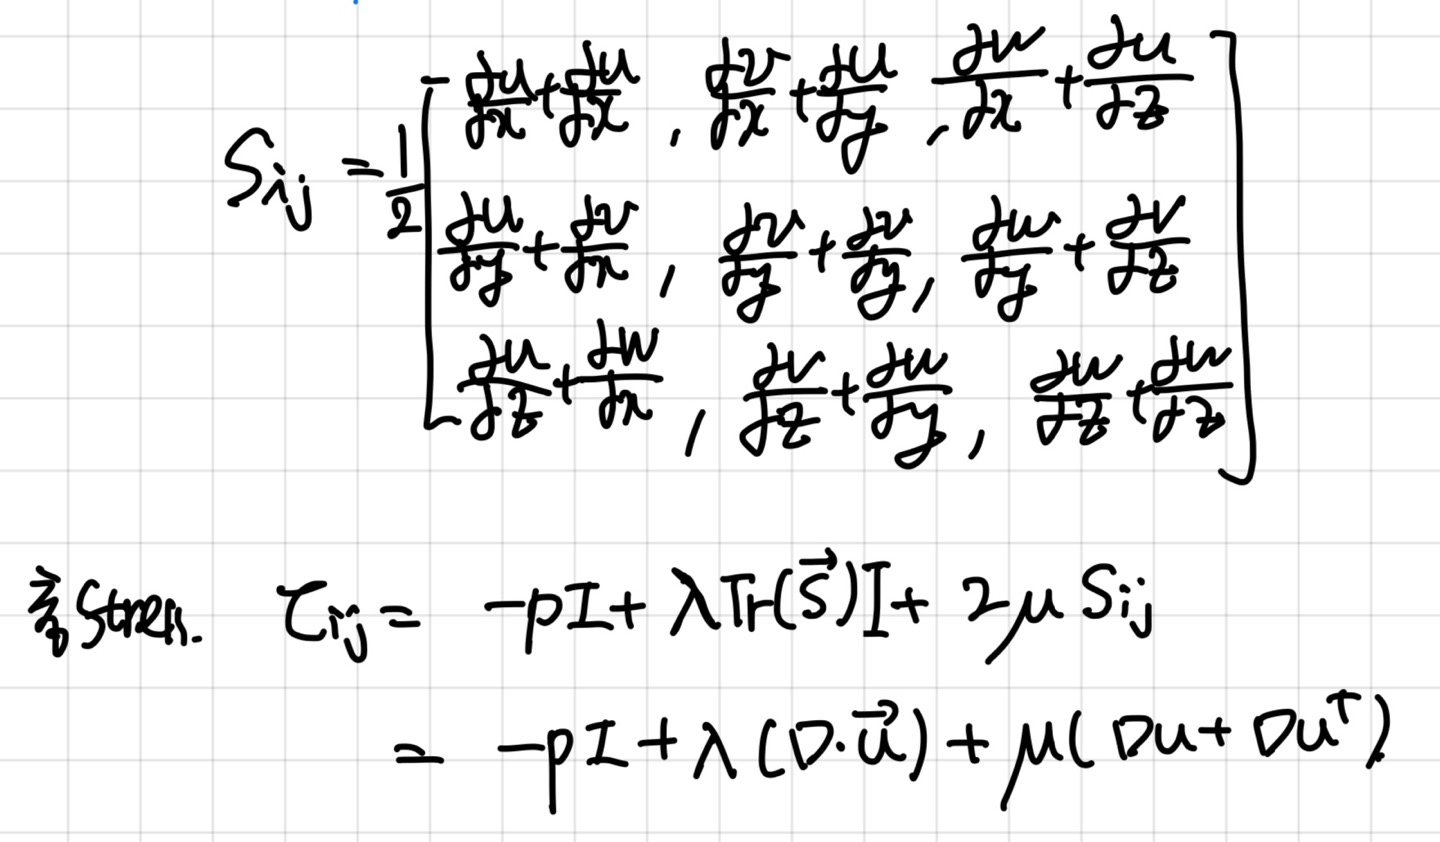 Sij = 1/2 [ ∂u/∂x + ∂u/∂x , ∂v/∂x + ∂u/∂y , ∂w/∂x + ∂u/∂z
∂u/∂y + ∂v/∂x , ∂v/∂y + ∂v/∂y , ∂w/∂y + ∂v/∂z
∂u/∂z + ∂w/∂x , ∂v/∂z + ∂w/∂y , ∂w/∂z + ∂w/∂z ]
총 Stress. τij = -pI + λTr(S⃗)I + 2μ Sij
= -pI + λ(∇·u⃗) + μ(∇u + ∇uᵀ)